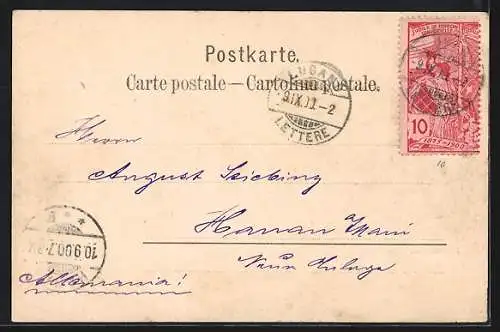 Postkarte.
Carte postale — Cartolina postale.
LUGANO
9.IX.00.-2
LETTERE
10
1875-1900
Herrn
August
Hanau Main
Neue Anlage
10.9.00.7-8
Allemania!
10